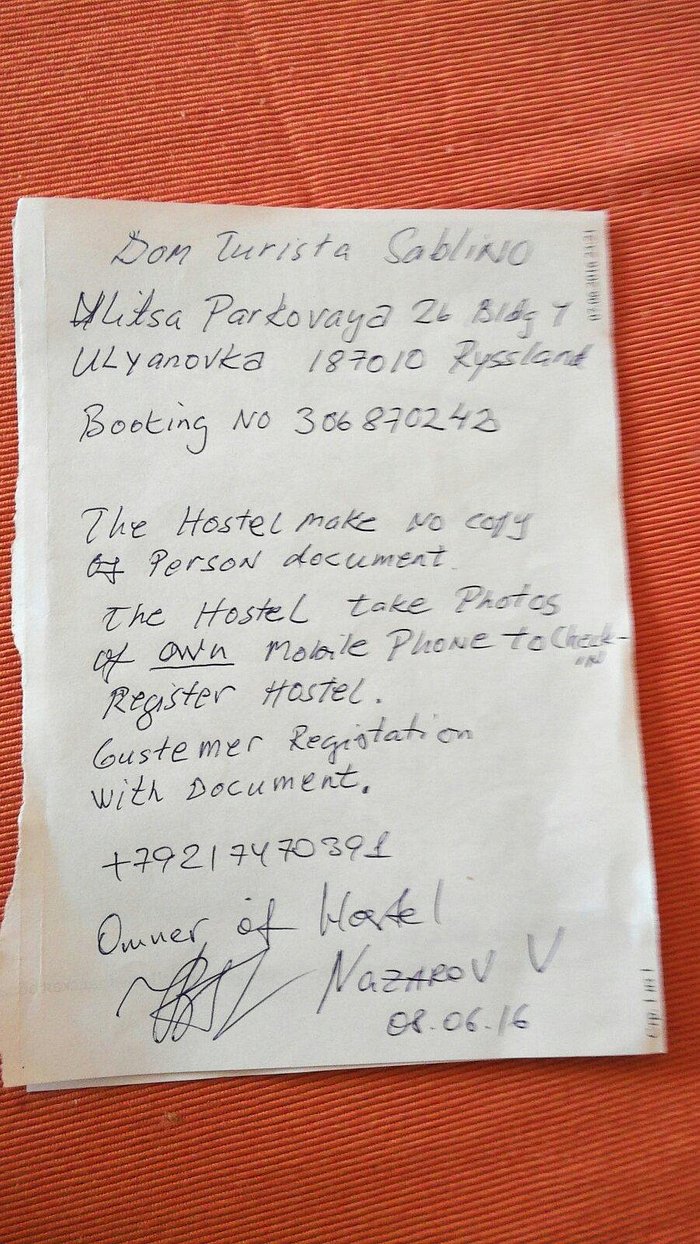 Dom Turista Sablino
Ulitsa Parkovaya 26 Bldg 7
Ulyanovka 187010 Ryssland
Booking No 306870242
The Hostel make No copy
of Person document.
The Hostel take Photos
of own Mobile Phone to Check-
in
Register Hostel.
Custemer Registation
with Document.
+79217470391
Owner of Hostel
Nazarov V
08.06.16